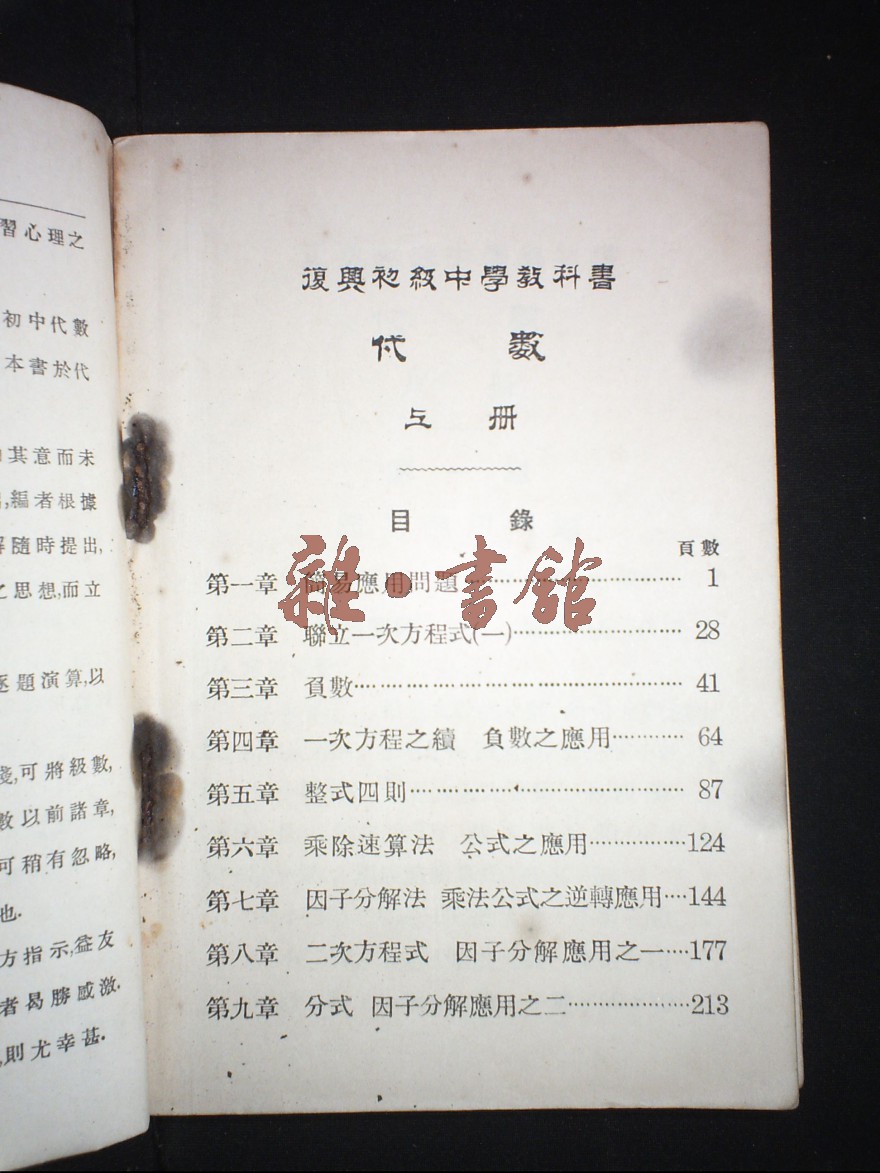 習心理之
初中代數
本書於代
其意而未
,編者根據
解隨時提出,
之思想,而立
逐題演算,以
淺,可將級數,
數以前諸章,
可稍有忽略,
也.
方指示,益友
者曷勝感激.
,則尤幸甚.
復興初級中學教科書
代 數
上 册
目 錄
頁數
第一章 簡易應用問題 1
第二章 聯立一次方程式(一) 28
第三章 負數 41
第四章 一次方程之續 負數之應用 64
第五章 整式四則 87
第六章 乘除速算法 公式之應用 124
第七章 因子分解法 乘法公式之逆轉應用 144
第八章 二次方程式 因子分解應用之一 177
第九章 分式 因子分解應用之二 213
雜·書館